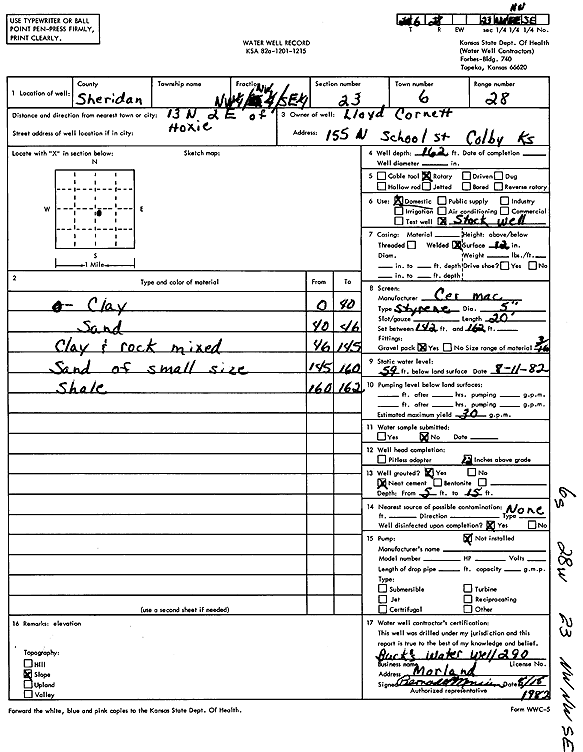 USE TYPEWRITER OR BALL
POINT PEN-PRESS FIRMLY,
PRINT CLEARLY.
WATER WELL RECORD
KSA 82a-1201-1215
NW
6 23 SE
T R EW sec 1/4 1/4 1/4 No.
Kansas State Dept. Of Health
(Water Well Contractors)
Forbes-Bldg. 740
Topeka, Kansas 66620
1 Location of well: County Township name Fraction Section number Town number Range number
Sheridan NW SE 23 6 28
Distance and direction from nearest town or city: 13 N 2 E of
Hoxie
Street address of well location if in city:
3 Owner of well: Lloyd Cornett
Address: 155 N School st Colby Ks
Locate with "X" in section below: Sketch map:
N
W E
S
1 Mile
4 Well depth: 162 ft. Date of completion
Well diameter in.
5 Cable tool X Rotary Driven Dug
Hollow rod Jetted Bored Reverse rotary
6 Use: X Domestic Public supply Industry
Irrigation Air conditioning Commercial
Test well X Stock well
7 Casing: Material Height: above/below
Threaded Welded X Surface 12 in.
Diam. Weight lbs./ft.
in. to ft. depth Drive shoe? Yes No
in. to ft. depth
2 Type and color of material From To
0- Clay 0 40
Sand 40 46
Clay & rock mixed 46 145
Sand of small size 145 160
Shale 160 162
(use a second sheet if needed)
8 Screen:
Manufacturer Cer mac.
Type Styrene Dia. 5"
Slot/gauze Length 20'
Set between 142 ft. and 162 ft.
Fittings:
Gravel pack X Yes No Size range of material 3/16
9 Static water level:
59 ft. below land surface Date 8-11-82
10 Pumping level below land surfaces:
ft. after hrs. pumping g.p.m.
ft. after hrs. pumping g.p.m.
Estimated maximum yield 30 g.p.m.
11 Water sample submitted:
Yes X No Date
12 Well head completion:
Pitless adapter 12 Inches above grade
13 Well grouted? X Yes No
X Neat cement Bentonite
Depth: From 5 ft. to 15 ft.
14 Nearest source of possible contamination: None
ft. Direction Type
Well disinfected upon completion? X Yes No
15 Pump: X Not installed
Manufacturer's name
Model number HP Volts
Length of drop pipe ft. capacity g.m.p.
Type:
Submersible Turbine
Jet Reciprocating
Centrifugal Other
16 Remarks: elevation
Topography:
Hill
X Slope
Upland
Valley
17 Water well contractor's certification:
This well was drilled under my jurisdiction and this
report is true to the best of my knowledge and belief.
Buck's Water Well 290
Business name License No.
Address Morland
Signed Date 8/16
Authorized representative 1982
Forward the white, blue and pink copies to the Kansas State Dept. Of Health.
Form WWC-5
6s 28W 23 NW NW SE